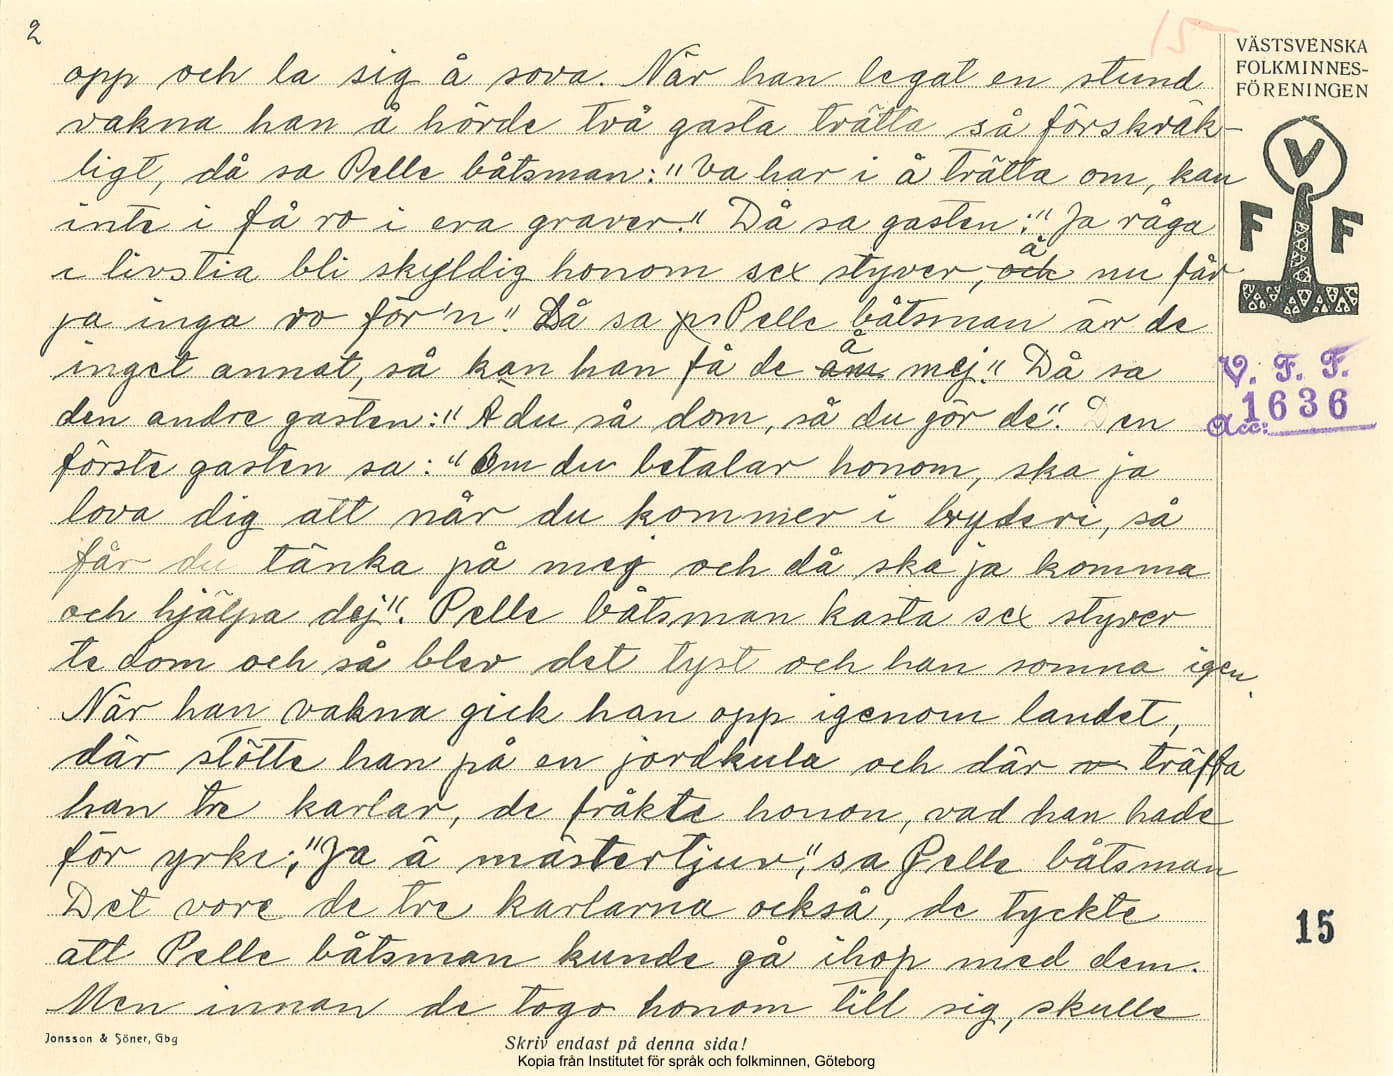 2
15
opp och la sig å sova. När han legat en stund
vakna han å hörde två gasta trätta så förskräk-
ligt, då sa Pelle båtsman: "Va har i å trätta om, kan
inte i få ro i era graver." Då sa gasten: "Ja råga
i livstia bli skyldig honom sex styver, och å nu får
ja inga ro för'n". Då sa Pelle båtsman är de
inget annat, så kan han få de å mej." Då sa
den andre gasten: "Ä du så dom, så du gör de". Den
förste gasten sa: "Om du betalar honom, ska ja
lova dig att når du kommer i bryderi, så
får du tänka på mej och då ska ja komma
och hjälpa dej". Pelle båtsman kasta sex styver
te dom och så blev det tyst och han somna igen.
När han vakna gick han opp igenom landet,
där stötte han på en jordkula och där träffa
han tre karlar, de fråkte honon, vad han hade
för yrke; "Ja ä mästertjuv", sa Pelle båtsman
Det vore de tre karlarna också, de tyckte
att Pelle båtsman kunde gå ihop med dem.
Men innan de togo honom till sig, skulle
VÄSTSVENSKA
FOLKMINNES-
FÖRENINGEN
V
F F
V F F
V. F. F.
Acc: 1636
15
Jonsson & Söner, Gbg
Skriv endast på denna sida!
Kopia från Institutet för språk och folkminnen, Göteborg